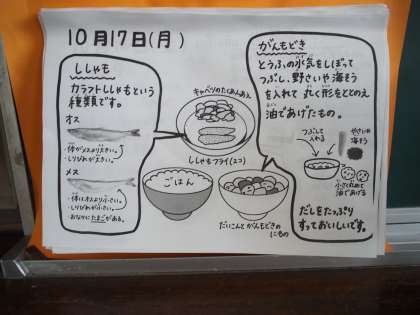 10月17日(月)
ししゃも
カラフトししゃもという
種類です。
オス
・体がメスより大きい。
・しりびれが大きい。
メス
・体はオスより小さい。
・しりびれが小さい。
・おなかにたまごがある。
キャベツのたくあんあえ
ししゃもフライ(2コ)
ごはん
だいこんとがんもどきの
にもの
がんもどき
とうふの水気をしぼって
つぶし、野さいや海そう
を入れて丸く形をととのえ
油であげたもの。
つぶして
入れる
やさいや
海そう
小さく丸めて
油であげる
だしをたっぷり
すっておいしいです。